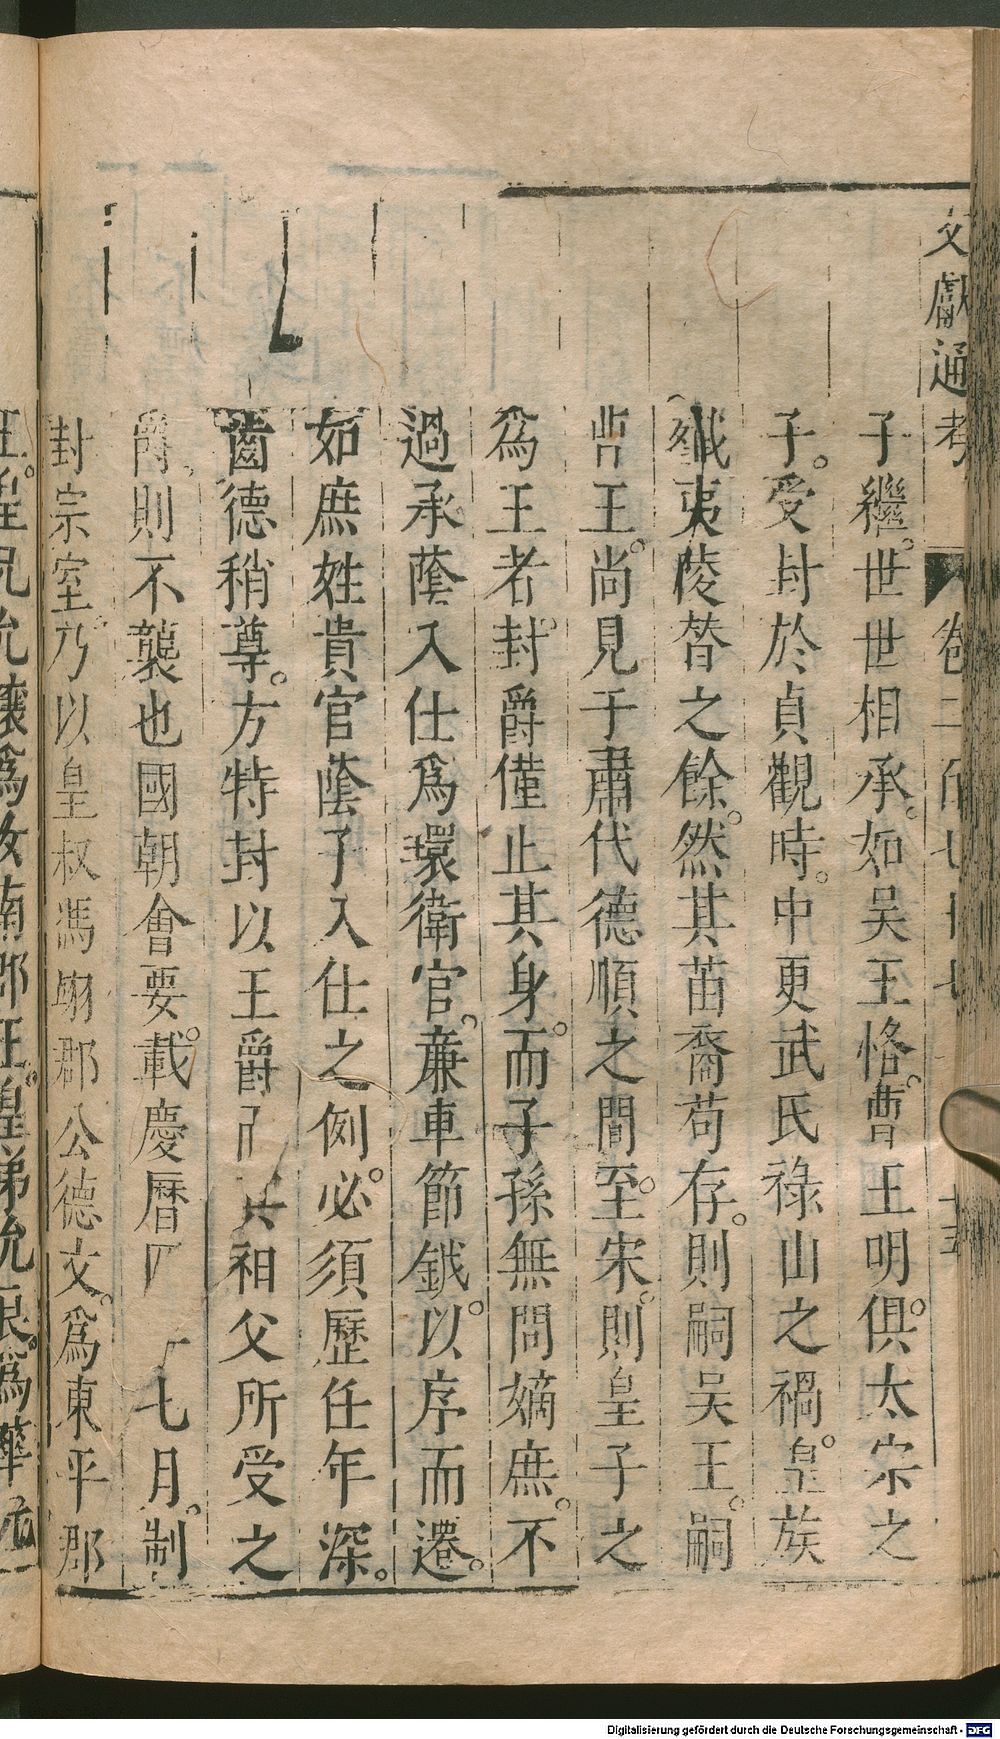 文獻通考 卷二百七十七 十五
子繼世世相承。如吴王恪。曹王明俱太宗之
子。受封於貞觀時。中更武氏祿山之禍。皇族
殱夷陵替之餘。然其苗裔苟存。則嗣吴王。嗣
曹王。尚見于肅代德順之間。至宋。則皇子之
爲王者。封爵僅止其身。而子孫無問嫡庶。不
過承蔭入仕爲環衛官。亷車節鉞。以序而遷。
如庶姓貴官蔭子入仕之例。必須歷任年深。
齒德稍尊。方特封以王爵 其祖父所受之
爵。則不襲也國朝會要。載慶曆 七月。制
封宗室。乃以皇叔馮翊郡公德文。爲東平郡
王。皇兄允讓爲汝南郡王。皇弟允良。爲華
Digitalisierung gefördert durch die Deutsche Forschungsgemeinschaft - DFG